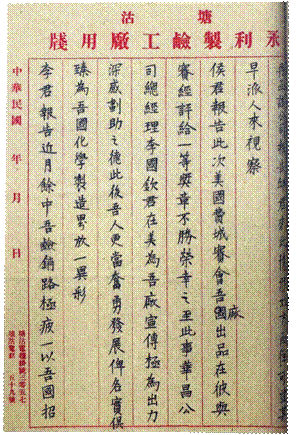 塘沽
永利製鹼工廠用牋
早派人來視察
廠
侯君報告此次美國費城賽會吾國出品在彼與
賽經評給一等奬章不勝榮幸之至此事華昌公
司總經理李國欽君在美為吾厰宣傳極為出力
深感助之德此後吾人更當奮勇發展俾名實俱
臻為吾國化學製造界放一異彩
李君報告近月餘中吾鹼銷路極疲一以吾國招
中華民國 年 月 日
塘沽電報掛號三零五七
塘沽電話 五十九號